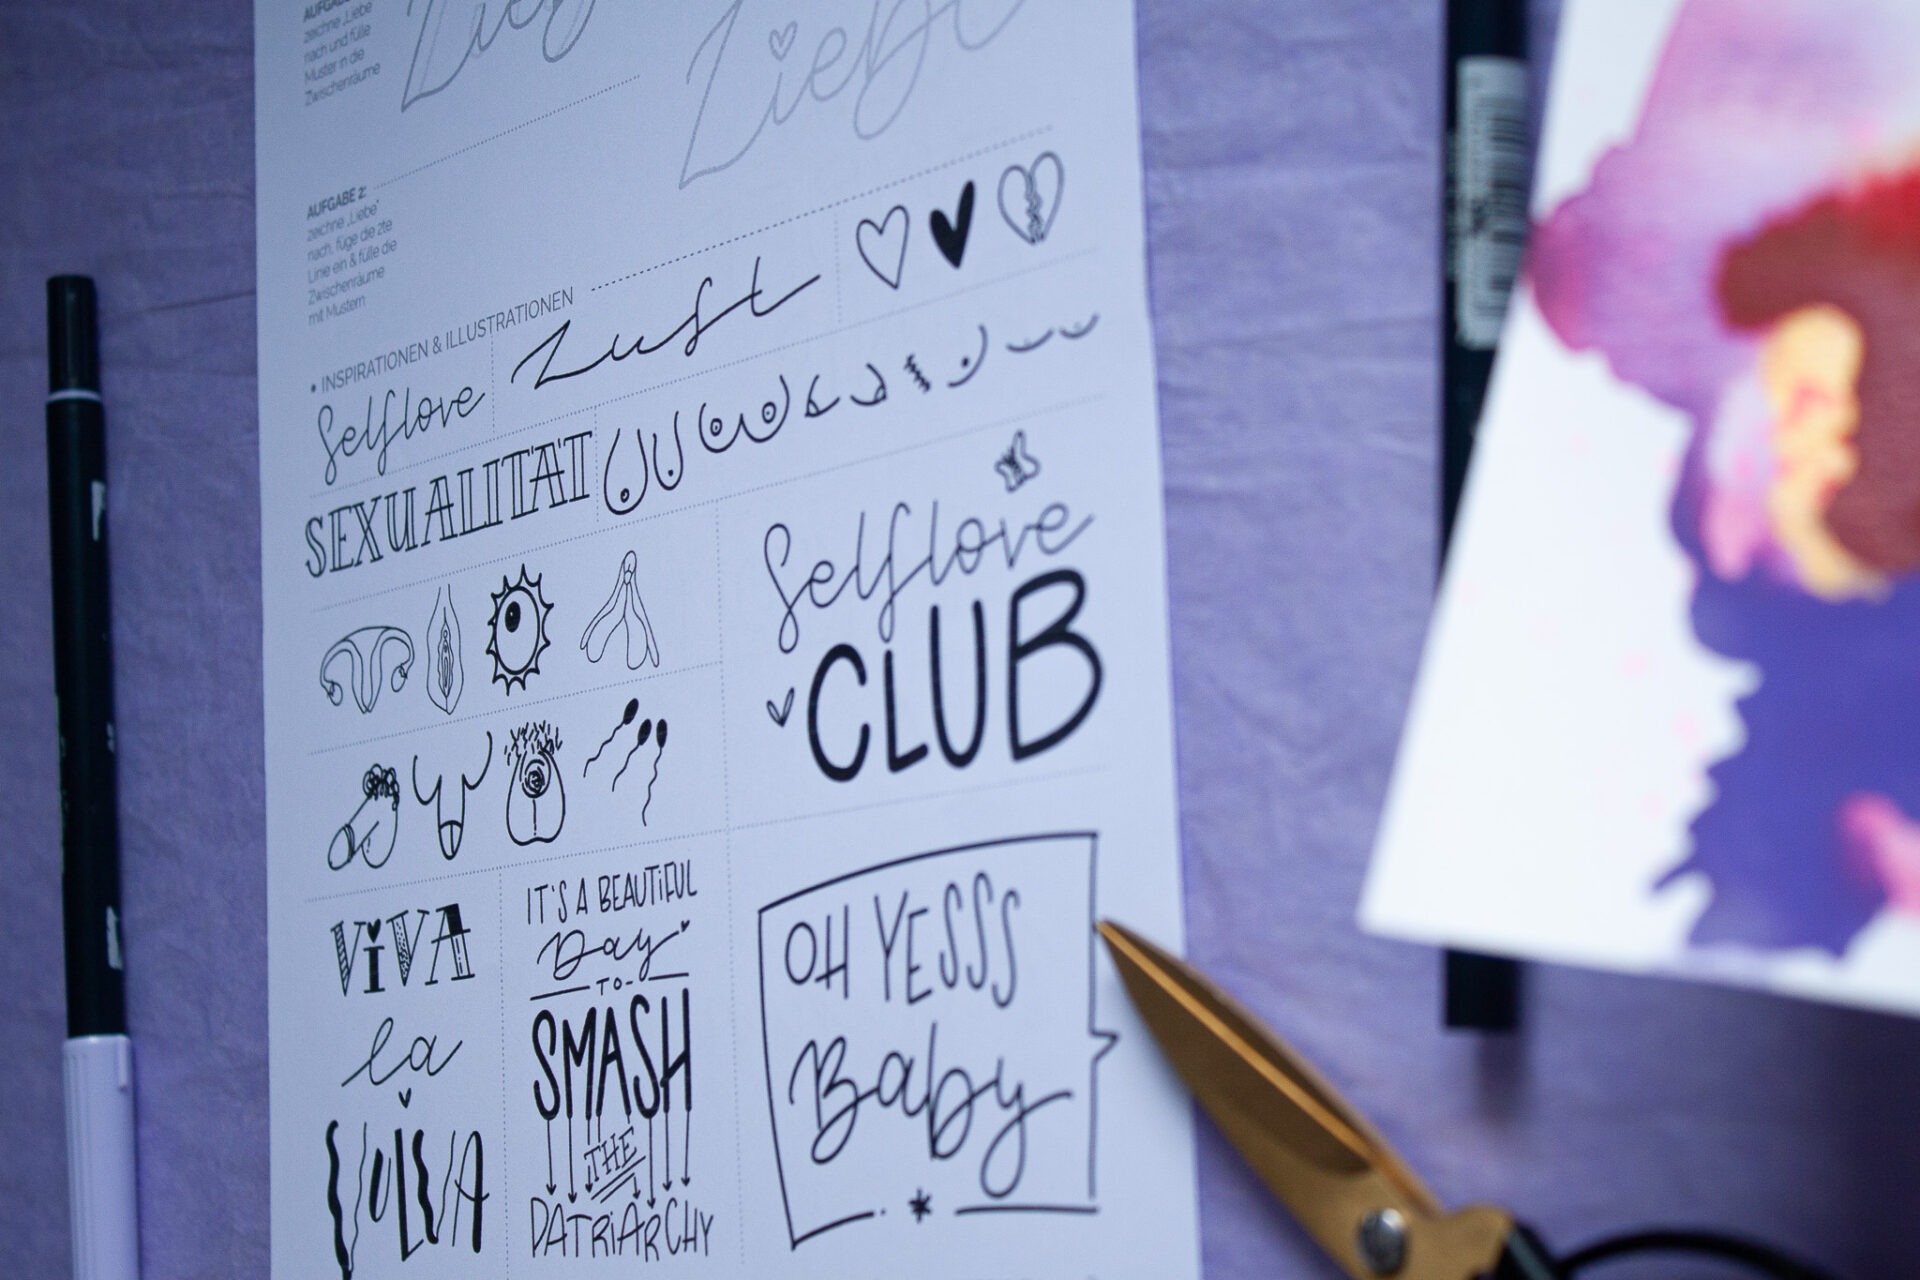 zeichne „Liebe
nach und fülle
Muster in die
Zwischenräume
Liebe
Liebe
AUFGABE 2:
zeichne „Liebe“
nach, füge die 2te
Linie ein & fülle die
Zwischenräume
mit Mustern
• INSPIRATIONEN & ILLUSTRATIONEN
Selflove
Lust
SEXUALITÄT
Selflove
CLUB
ViVA
la
VULVA
IT'S A BEAUTiFUL
Day
-TO-
SMASH
THE
PATRiARCHY
OH YESSS
Baby